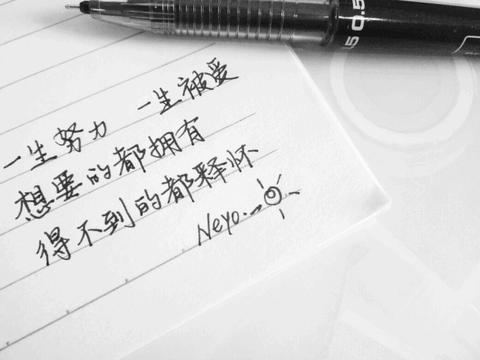 5 0.5
一生努力 一生被爱
想要的都拥有
得不到的都释怀
Neyo.